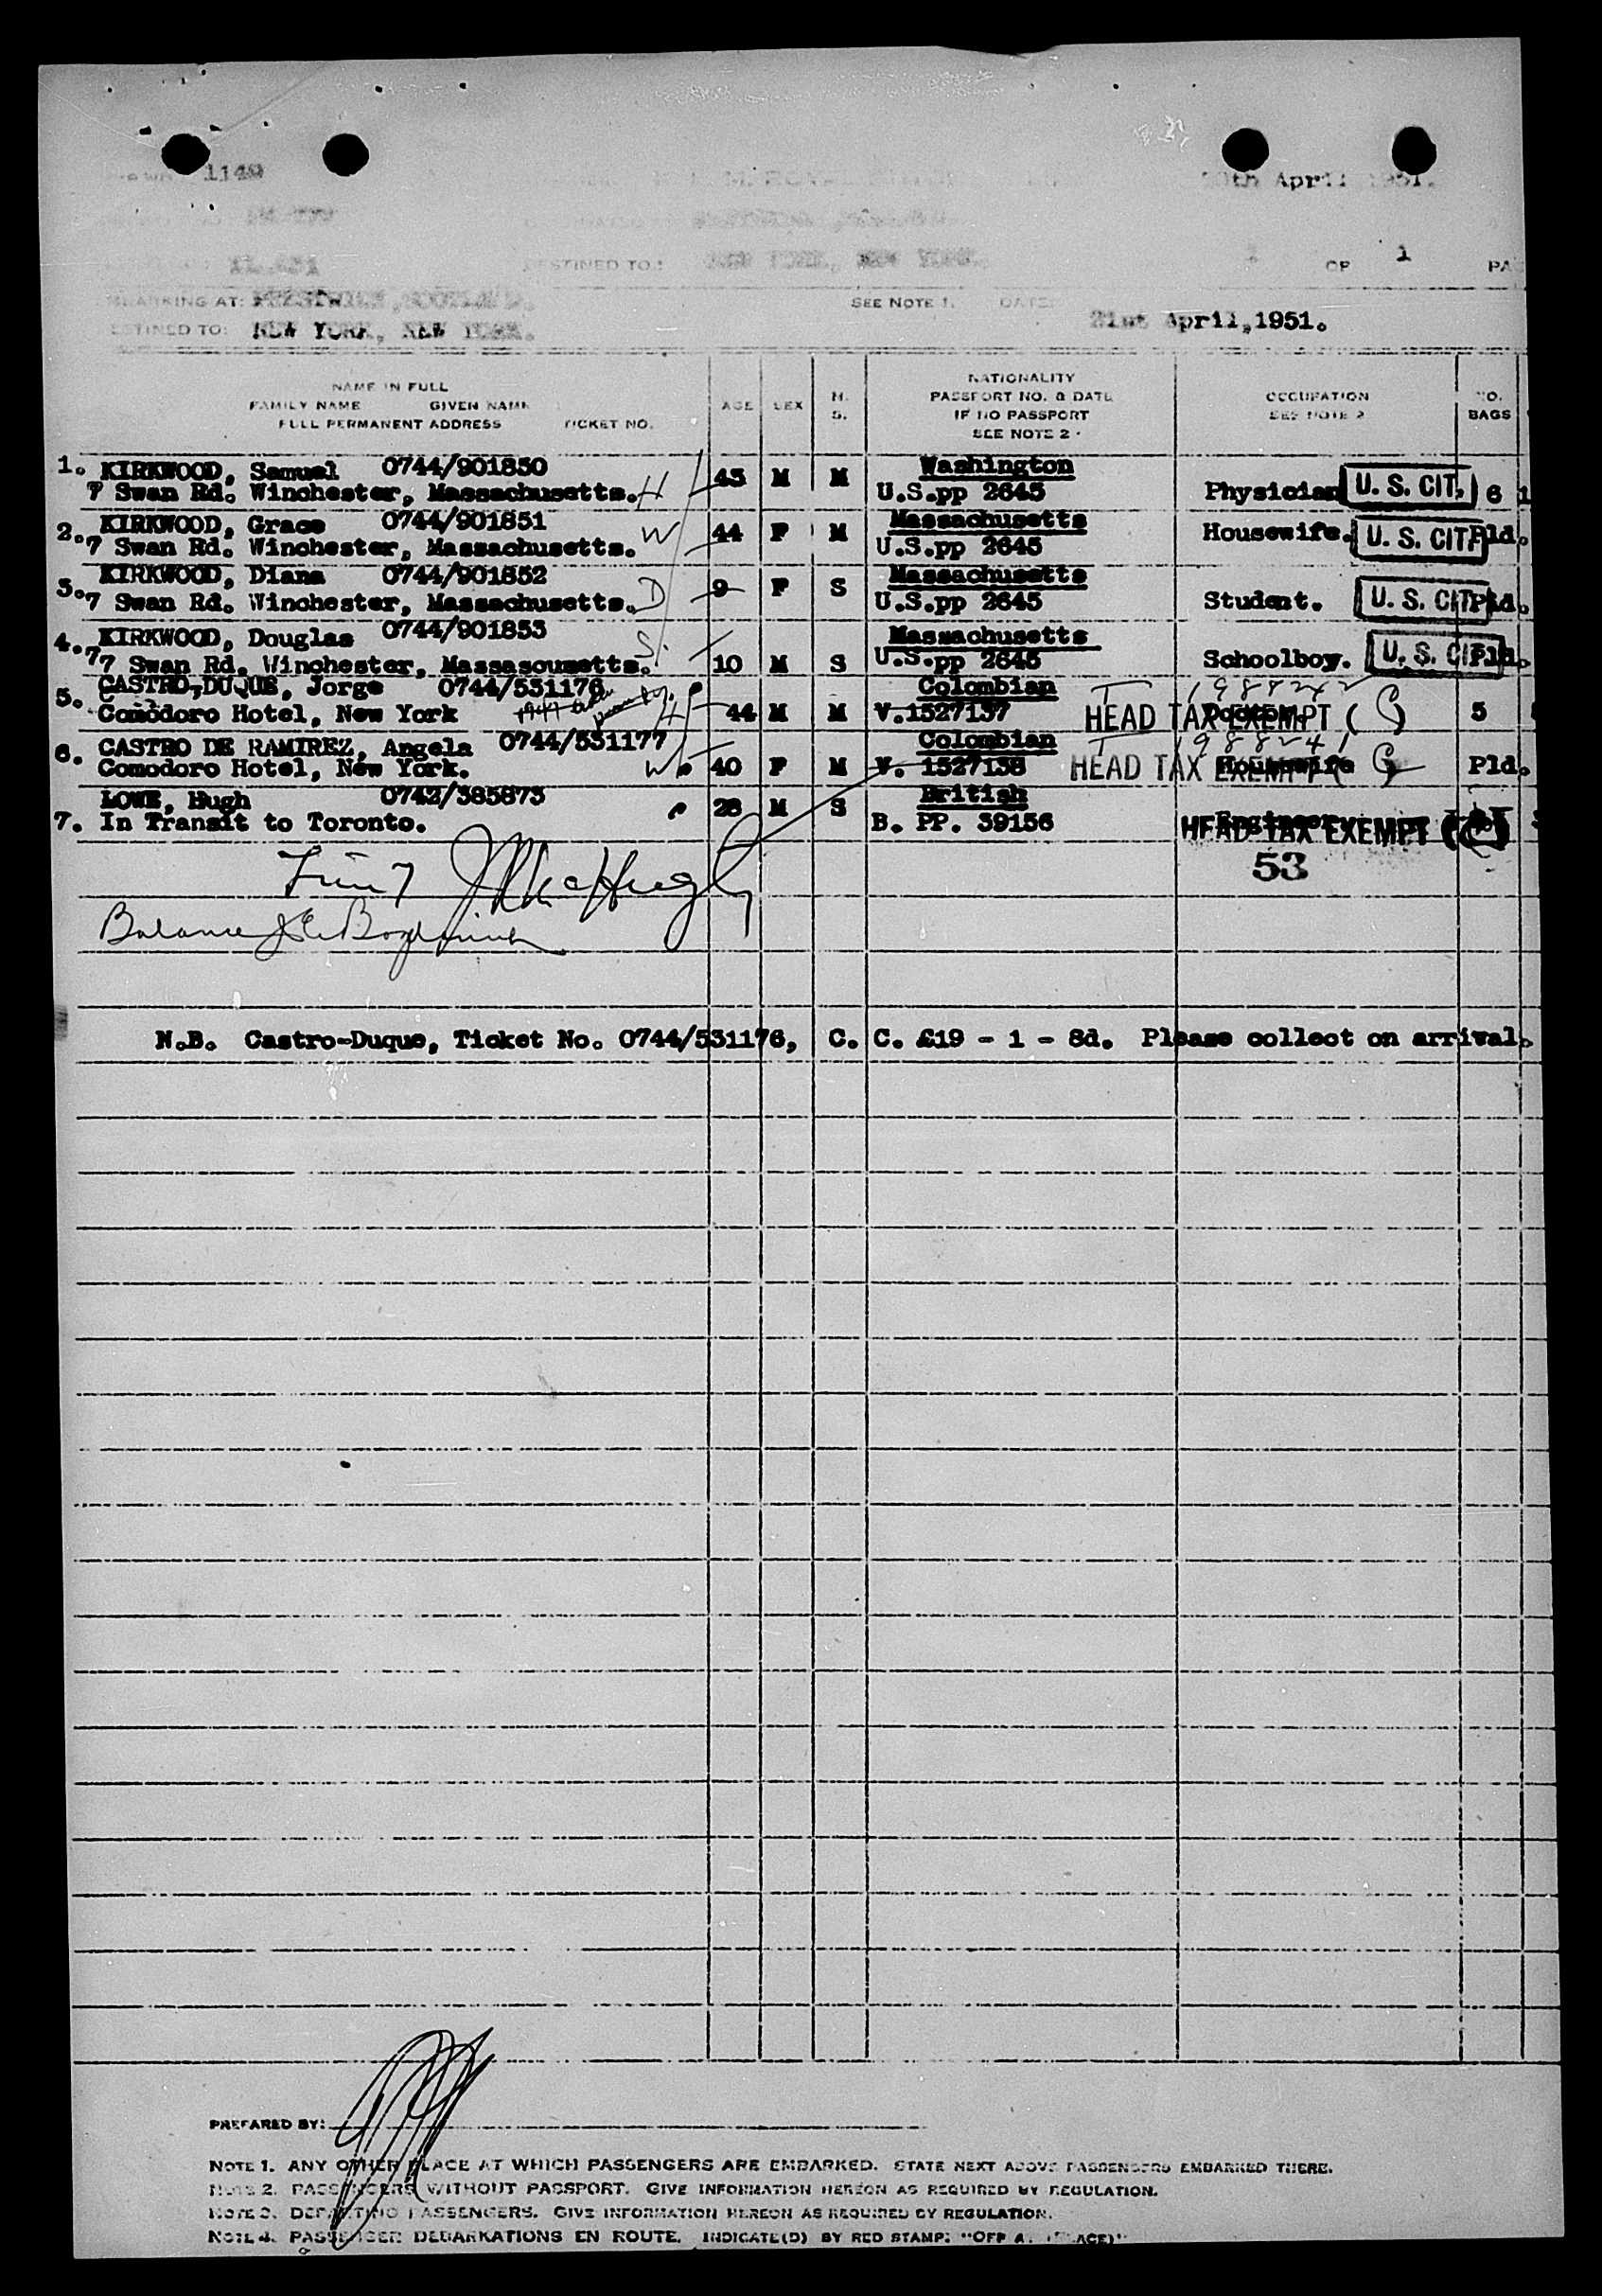 1149
April 1951.
DESTINED TO: NEW YORK, NEW YORK. OF 1
EMBARKING AT: SEE NOTE 1. DATE:
DESTINED TO: NEW YORK, NEW YORK. 21st April,1951.
NAME IN FULL
FAMILY NAME GIVEN NAME
FULL PERMANENT ADDRESS TICKET NO.
AGE SEX M. S.
NATIONALITY
PASSPORT NO. & DATE
IF NO PASSPORT
SEE NOTE 2
OCCUPATION
SEE NOTE 2
NO. BAGS
1. KIRKWOOD, Samuel 0744/901850 45 M M Washington
7 Swan Rd. Winchester, Massachusetts. H U.S.pp 2645 Physician U. S. CIT. 6 1
2. KIRKWOOD, Grace 0744/901851 44 F M Massachusetts
7 Swan Rd. Winchester, Massachusetts. W U.S.pp 2645 Housewife. U. S. CIT. Pld.
3. KIRKWOOD, Diana 0744/901852 9 F S Massachusetts
7 Swan Rd. Winchester, Massachusetts. D U.S.pp 2645 Student. U. S. CIT. Pld.
4. KIRKWOOD, Douglas 0744/901853 10 M S Massachusetts
77 Swan Rd. Winchester, Massasousetts. S. U.S.pp 2645 Schoolboy. U. S. CIT. Pld.
5. CASTRO-DUQUE, Jorge 0744/531176 44 M M Colombian I 1988242
Comodoro Hotel, New York H V.1527137 HEAD TAX EXEMPT ( G ) 5
6. CASTRO DE RAMIREZ, Angela 0744/531177 40 F M Colombian I 1988241
Comodoro Hotel, New York. W V. 1527138 Housewife HEAD TAX EXEMPT ( G Pld.
LOWE, Hugh 0742/385873 28 M S British
7. In Transit to Toronto. B. PP. 39156 Engineer HEAD TAX EXEMPT
53
Balance
N.B. Castro-Duque, Ticket No. 0744/531176, C. C. £19 - 1 - 8d. Please collect on arrival.
PREPARED BY:
NOTE 1. ANY OTHER PLACE AT WHICH PASSENGERS ARE EMBARKED. STATE NEXT ABOVE PASSENGERS EMBARKED THERE.
NOTE 2. PASSENGERS WITHOUT PASSPORT. GIVE INFORMATION HEREON AS REQUIRED BY REGULATION.
NOTE 3. DEPARTING PASSENGERS. GIVE INFORMATION HEREON AS REQUIRED BY REGULATION.
NOTE 4. PASSENGER DEBARKATIONS EN ROUTE. INDICATE(D) BY RED STAMP: "OFF AT (PLACE)"